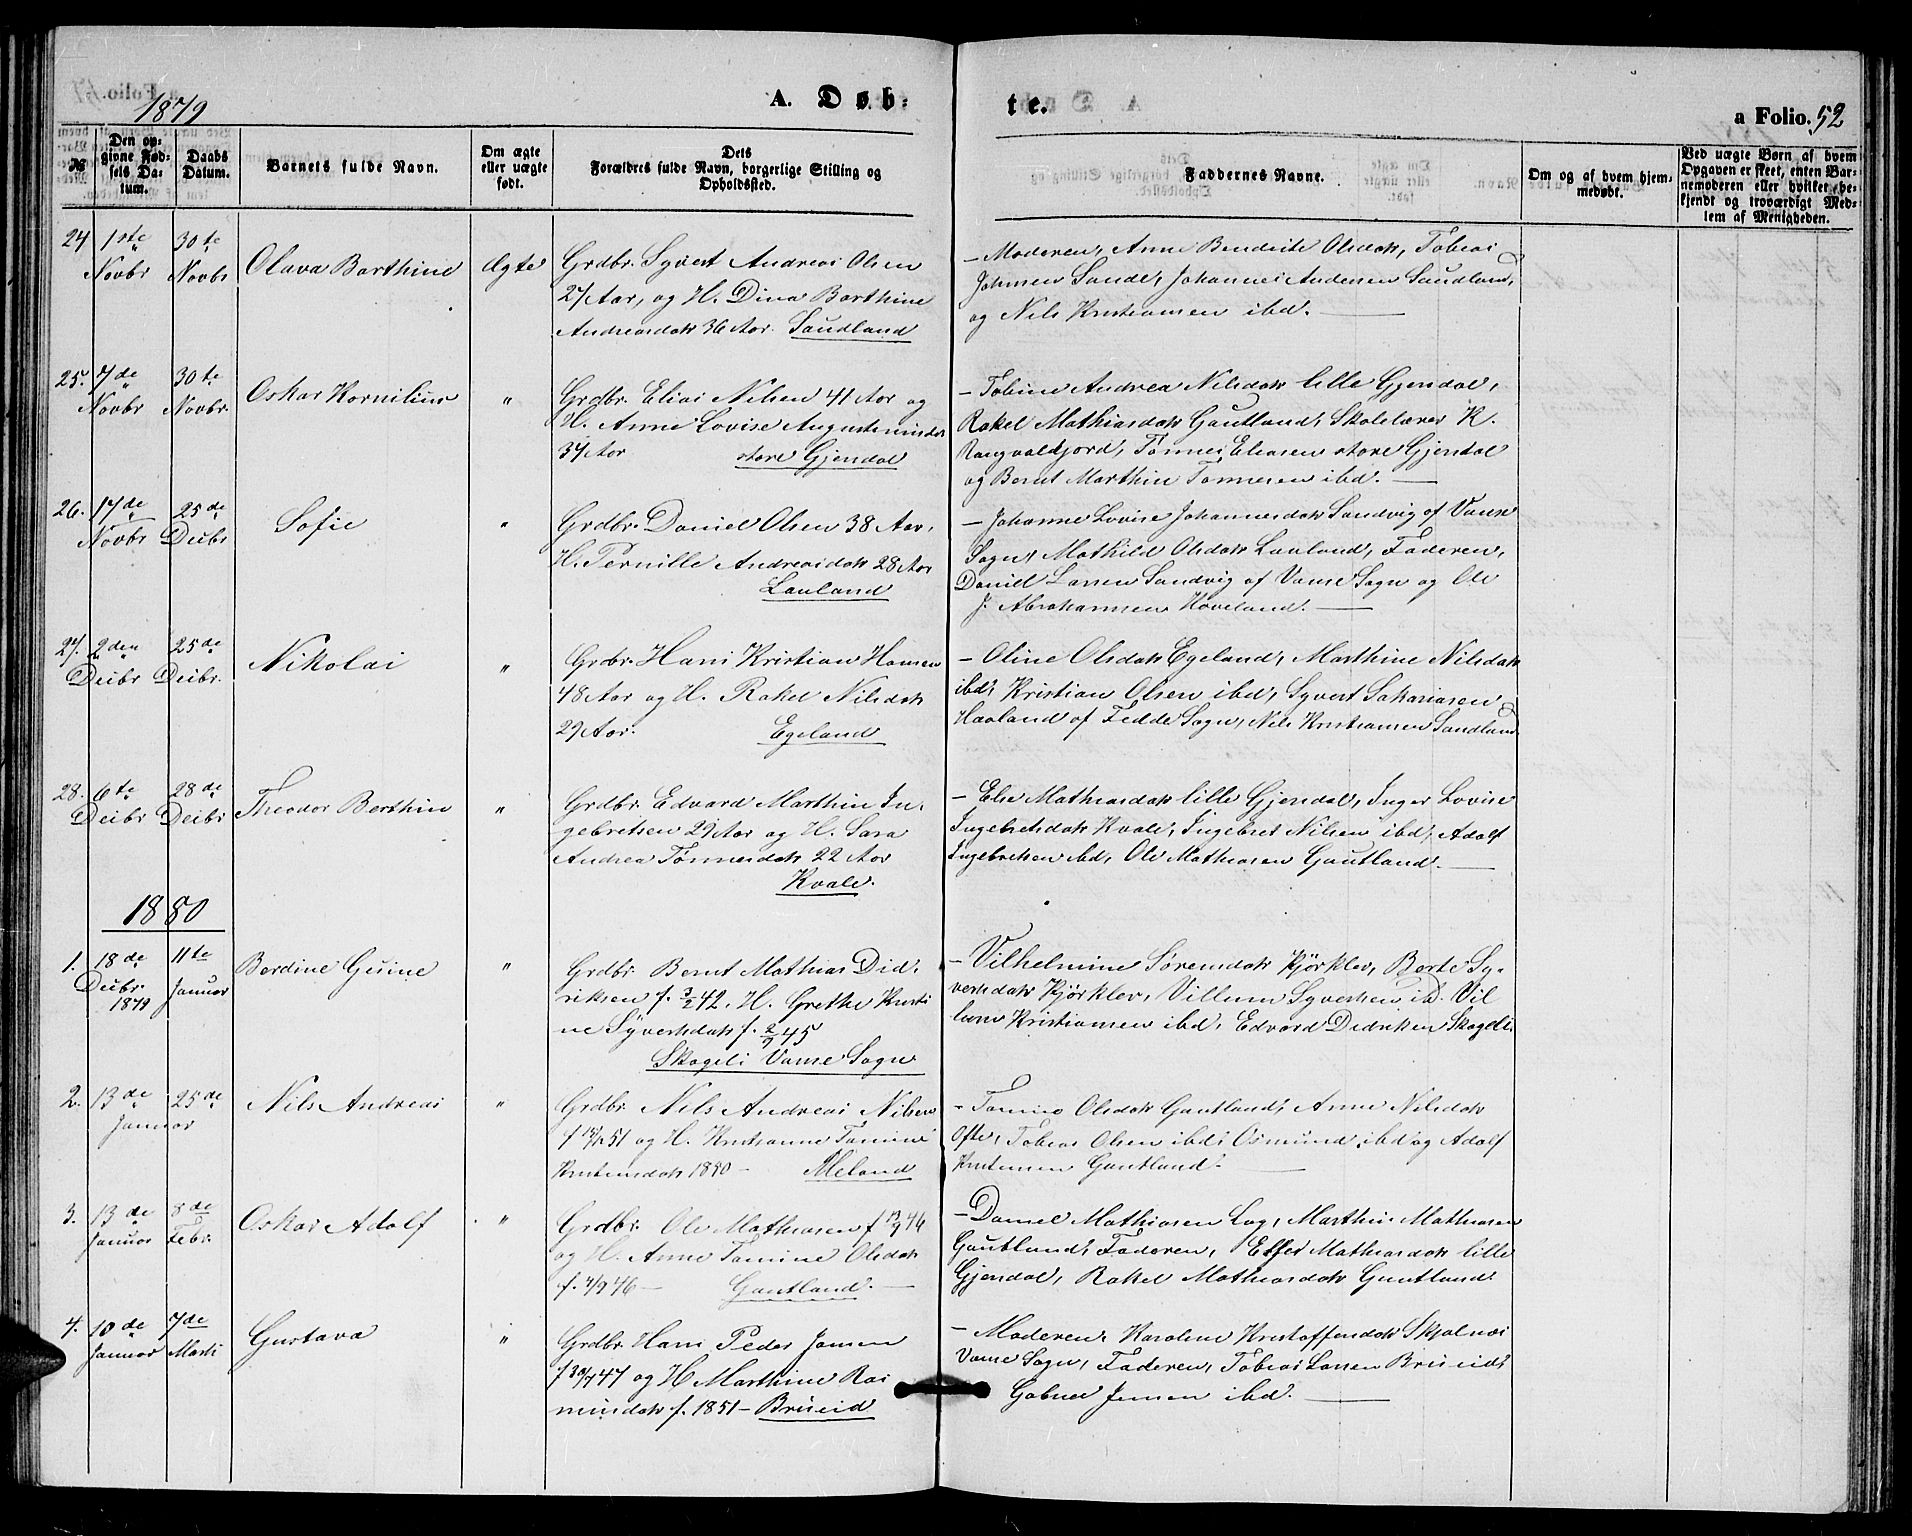 1879
A. Døb-
te.
a Folio. 52
№
Den op-
givne Fød-
sels Da-
tum.
Daabs
Datum.
Barnets fulde Navn.
Om ægte
eller uægte
født.
Dets
Forældres fulde Navn, borgerlige Stilling og
Opholdssted.
Faddernes Navne.
Om og af hvem hjem-
medøbt.
Ved uægte Børn af hvem
Opgaven er skeet, enten Bar-
nemoderen eller hvilket be-
kjendt og troværdigt Med-
lem af Menigheden.
24 1ste Novbr 30te Novbr Olava Barthine Ægte
Grdbr. Syvert Andreas Olsen
27 Aar, og H. Dina Barthine
Andreasdatr 36 Aar. Saudland
- Moderen, Anne Bendicte Olsdatr, Tobias
Johnsen Sande, Johannes Andersen Saudland,
og Nils Kristiansen ibd.
25. 7de Novbr 30te Novbr. Oskar Kornilius "
Grdbr. Elias Nilsen 41 Aar og
H. Anne Lovise Augustinusdr
34 Aar store Gjendal
- Tobine Andrea Nilsdatr lille Gjendal,
Rakel Mathiasdatr Gautland, Skolelærer K.
Rangvaldjord, Tønnes Eliasen store Gjendal
og Bernt Marthin Tønnesen ibd.
26. 17de Novbr 25de Decbr Sofie "
Grdbr. Daniel Olsen 38 Aar,
H. Pernille Andreasdatr 28 Aar
Lauland
- Johanne Lovise Johannesdatr Sandvig af Vanse
Sogn, Mathild Olsdatr Lauland, Faderen,
Daniel Larsen Sandvig af Vanse Sogn og Ole
J. Abrahamsen Hoveland.
27. 2den Decbr 25de Decbr. Nikolai "
Grdbr. Hans Kristian Hansen
48 Aar og H. Rakel Nilsdatr
29 Aar. Egeland
- Oline Olsdatr Egeland, Marthine Nilsdatr
ibd, Kristian Olsen ibd, Syvert Sakariasen
Haaland af Fedde Sogn, Nils Kristiansen Saudland
28. 6te Decbr 28de Decbr Theodor Berthin "
Grdbr. Edvard Marthin In-
gebretsen 29 Aar og H. Sara
Andrea Tønnesdatr 22 Aar
Kvale.
- Else Mathiasdatr lille Gjendal, Inger Lovise
Ingebretsdatr Kvale, Ingebret Nilsen ibd, Adolf
Ingebretsen ibd, Ole Mathiasen Gautland.
1880
1. 18de Decbr. 1879 11te Januar Berdine Gusine "
Grdbr. Bernt Mathias Did-
riksen f. 3/2 42. H. Grethe Kristi
ne Syvertsdatr f. 2/9 45
Skogeli Vanse Sogn
- Vilhelmine Sørensdatr Kjørklev, Berte Sy-
vertsdatr Kjørklev, Villum Syvertsen ibd. Vil
lum Kristiansen ibd, Edvard Didriksen Skogeli
2. 13de Januar 25de Nils Andreas "
Grdbr. Nils Andreas Nilsen
51 og H. Kristianne Tomine
Kristensdatr Meland
- Tomine Olsdatr Gautland, Anne Nilsdatr
Ofte, Tobias Olsen ibd, Osmund ibd og Adolf
Kristensen Gautland.
3. 13de Januar 8de Febr. Oskar Adolf "
Grdbr. Ole Mathiasen 46
og H. Anne Tomine Olsdatr
46 - Gautland.
- Daniel Mathiasen Log, Marthin Mathiasen
Gautland, Faderen, Mathiasdatr lille
Gjendal, Rakel Mathiasdatr Gautland
4. 10de Januar 7de Marts Gustava "
Grdbr. Hans Peder Jansen
47 og H Marthine Ras
musdatr f. 1851 - Briseid
- Moderen, Karoline Kristoffersdatr Skjolnes
Vanse Sogn, Faderen, Tobias Larsen Briseid,
Gabriel Jensen ibd.